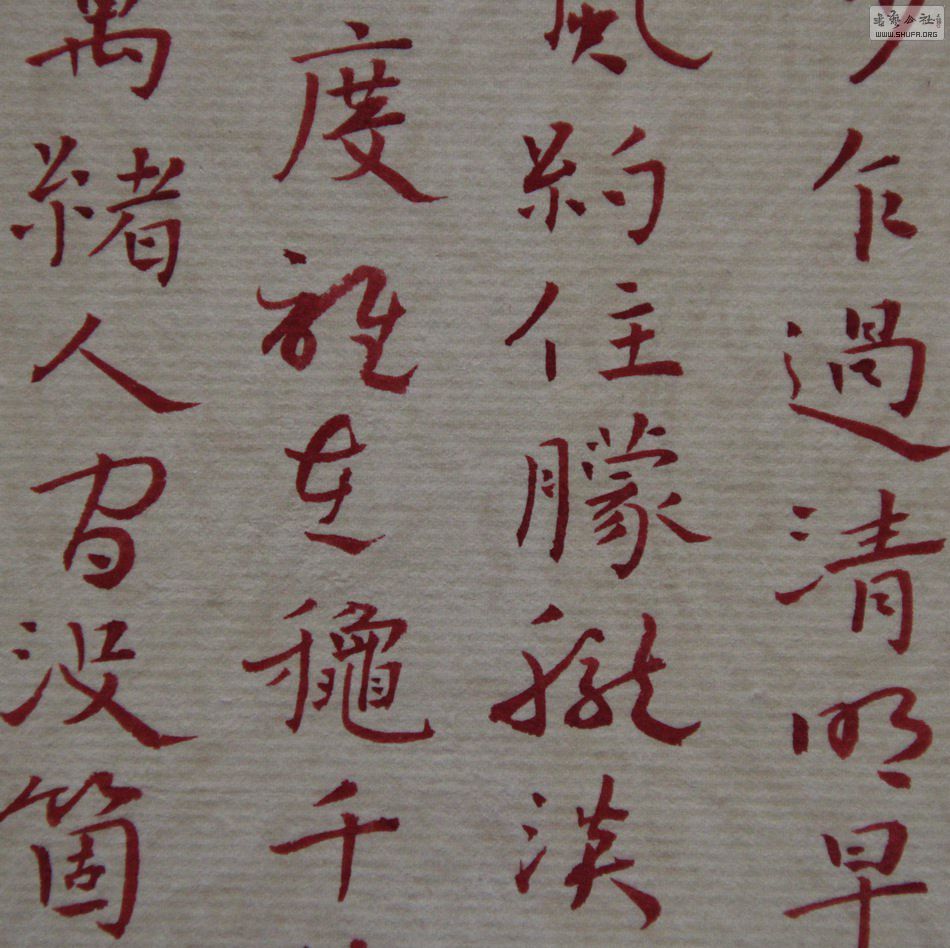 步乍過清明早
風約住朦朧淡
度誰在穐千
萬緒人間没箇
書藝公社
WWW.SHUFA.ORG